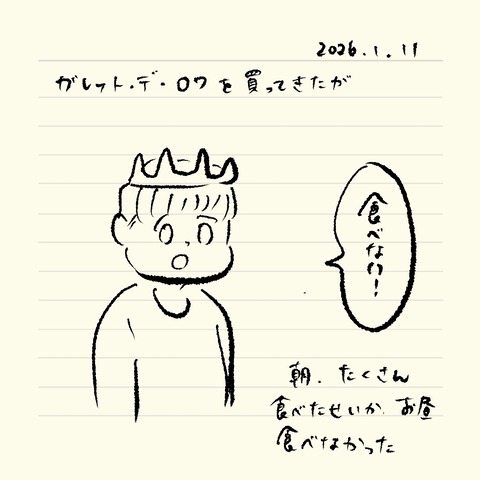 2026.1.11
ガレット・デ・ロワを買ってきたが
食べない!
朝、たくさん
食べたせいか、お昼
食べなかった